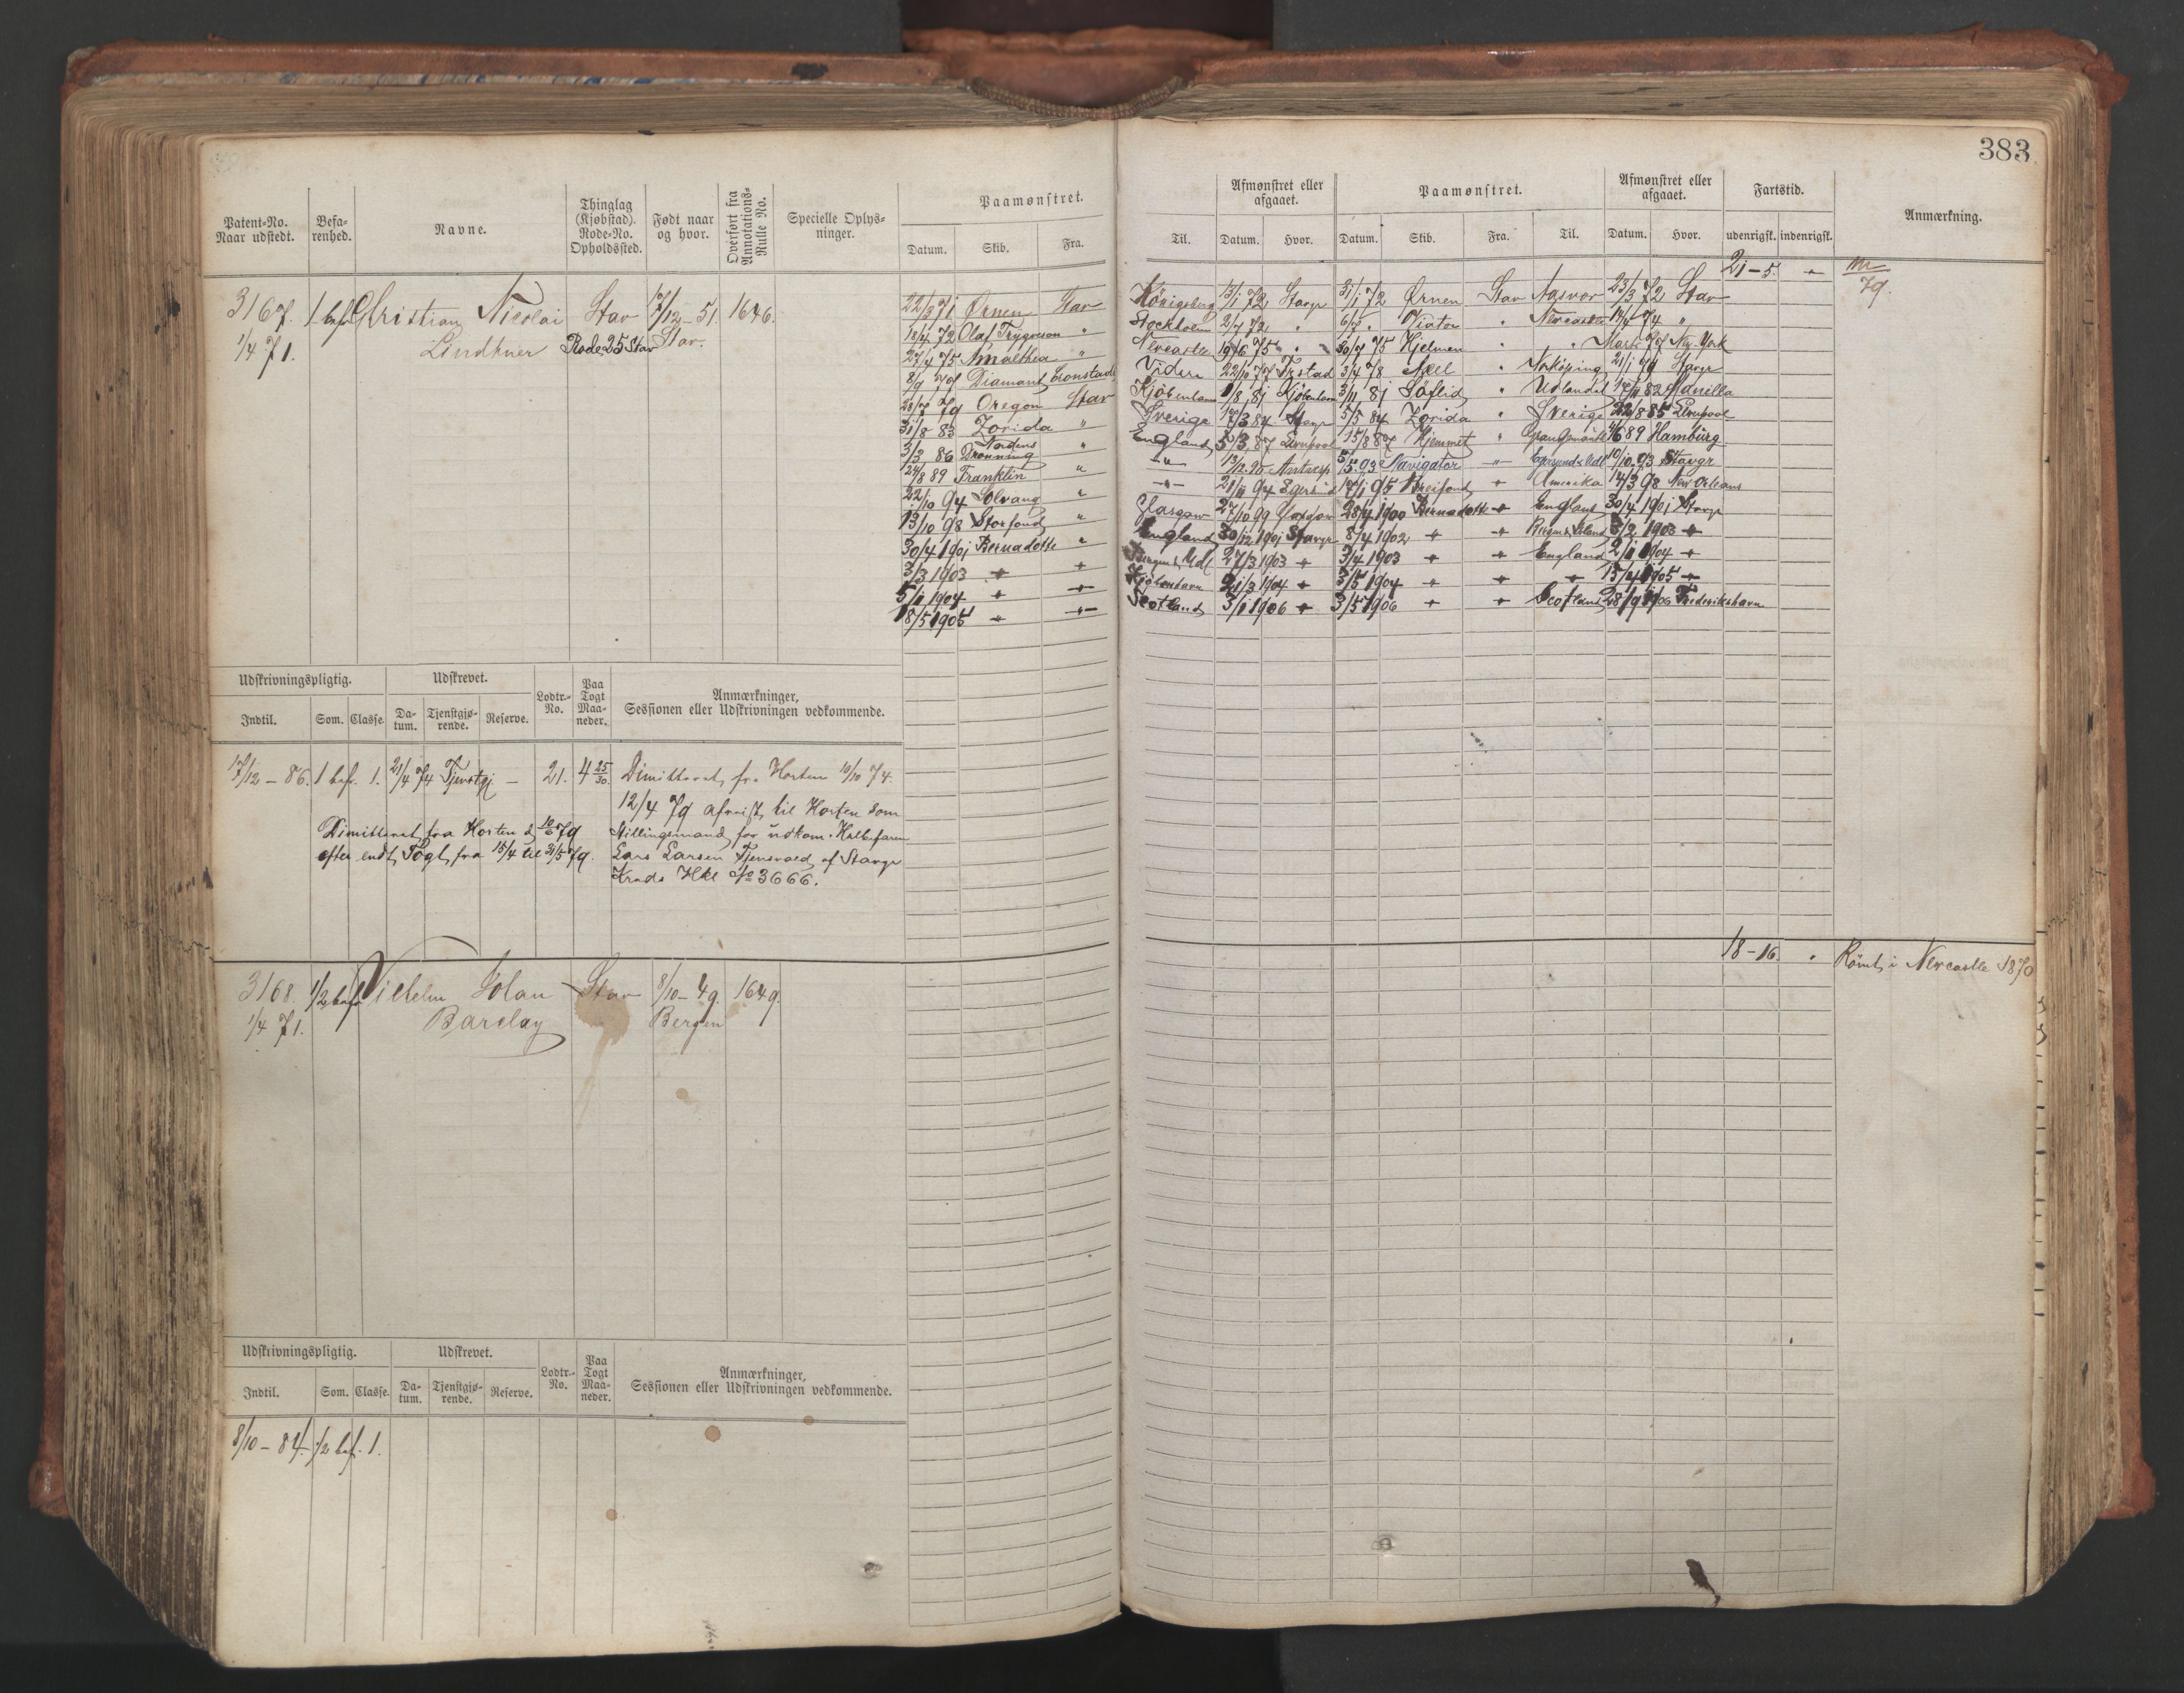 383
Patent-No.
Naar udstedt.
Befa-
renhed.
Navne.
Thinglag
(Kjøbstad).
Rode-No.
Opholdssted.
Født naar
og hvor.
Overført fra
Annotations-
Rulle No.
Specielle Oplys-
ninger.
Paamønstret.
Datum. Skib. Fra.
Til.
Afmønstret eller
afgaaet.
Datum. Hvor.
Paamønstret.
Datum. Skib. Fra. Til.
Afmønstret eller
afgaaet.
Datum. Hvor.
Fartstid.
udenrigsk. indenrigsk.
Anmærkning.
21-5. "
79.
3167. 1 bef. Christian Nicolai Stav 17/12-51. 1646.
1/4 71. Lindtner Rode 25 Stav Stav.
22/3 71 Ørnen Stav Königsberg 13/1 72 Stavgr 31/1 72 Ørnen Stav Aasvær 23/3 72 Stav
18/4 72 Olaf Trygveson " Stockholm 2/7 72 " Viator " Newcastle 74 "
27/4 75 Amalthea " Newcastle 19/6 75 " 30/7 75 Hjelmen " " Marts 77 New-York
8/9 77 Diamant Cronstadt 22/10 77 3/4 78 Axel " Norköping 21/1 79 Stavgr
79 Oregon Stav Kjöbenhavn 1/8 81 Kjöbenhavn 3/11 81 " Udlandet 82 Manilla
31/8 83 Zorida " Sverige 17/3 84 Stavgr 5/5 84 Zorida " Sverige 22/8 85 Liverpool
3/3 86 Nordens
Dronning " England 5/3 87 Liverpool 15/8 87 Hjemmet " 89 Hamburg
24/8 89 Franklin " -"- 13/12 90 Antwerp 5/5 93 Navigator -"- 10/10 93 Stavgr
22/10 94 Solvang " -"- 21/11 94 Egersund 95 " Amerika 14/3 98 New Orleans
13/10 98 Storfond " Glasgow 27/10 99 28/4 1900 Bernadotte " England 30/4 1901 Stavgr
30/4 1901 Bernadotte " England 30/12 1901 Stavgr 8/4 1902 " " 3/2 1903 "
3/3 1903 " " Bergen & Udl 27/3 1903 " 3/4 1903 " " England 2/11 1904 "
5/11 1904 " " Kjöbenhavn 21/3 1904 " 3/5 1904 " " " 15/4 1905 "
18/5 1905 " " Scotland 3/1 1906 " 3/5 1906 " " Scotland 28/9 1906 Frederikshavn
Udskrivningspligtig.
Indtil. Som. Classe.
Udskrevet.
Da-
tum.
Tjenstgjø-
rende.
Reserve.
Lodtr.-
No.
Paa
Togt
Maa-
neder.
Anmærkninger,
Sessionen eller Udskrivningen vedkommende.
17/12-86. 1 bef. 1. 21/4 74 Tjenstgj - 21. 4 25/30. Dimitteret fra Horten 10/10 74.
12/4 79 afreist til Horten som
Stillingsmand for udkom. Halvbefaren
Lars Larsen Tjensvold af Stavgr
Krads Hbl No 3666.
Dimitteret fra Horten d 10/6 79
efter endt Togt fra 15/4 til 31/5 79.
3168. 1/2 bef. Vilhelm Stav 8/10-49. 1649.
1/4 71. Barclay Bergen
18-16. " Römt i Newcastle 1870
Udskrivningspligtig.
Indtil. Som. Classe.
Udskrevet.
Da-
tum.
Tjenstgjø-
rende.
Reserve.
Lodtr.-
No.
Paa
Togt
Maa-
neder.
Anmærkninger,
Sessionen eller Udskrivningen vedkommende.
8/10-84. 1/2 bef. 1.